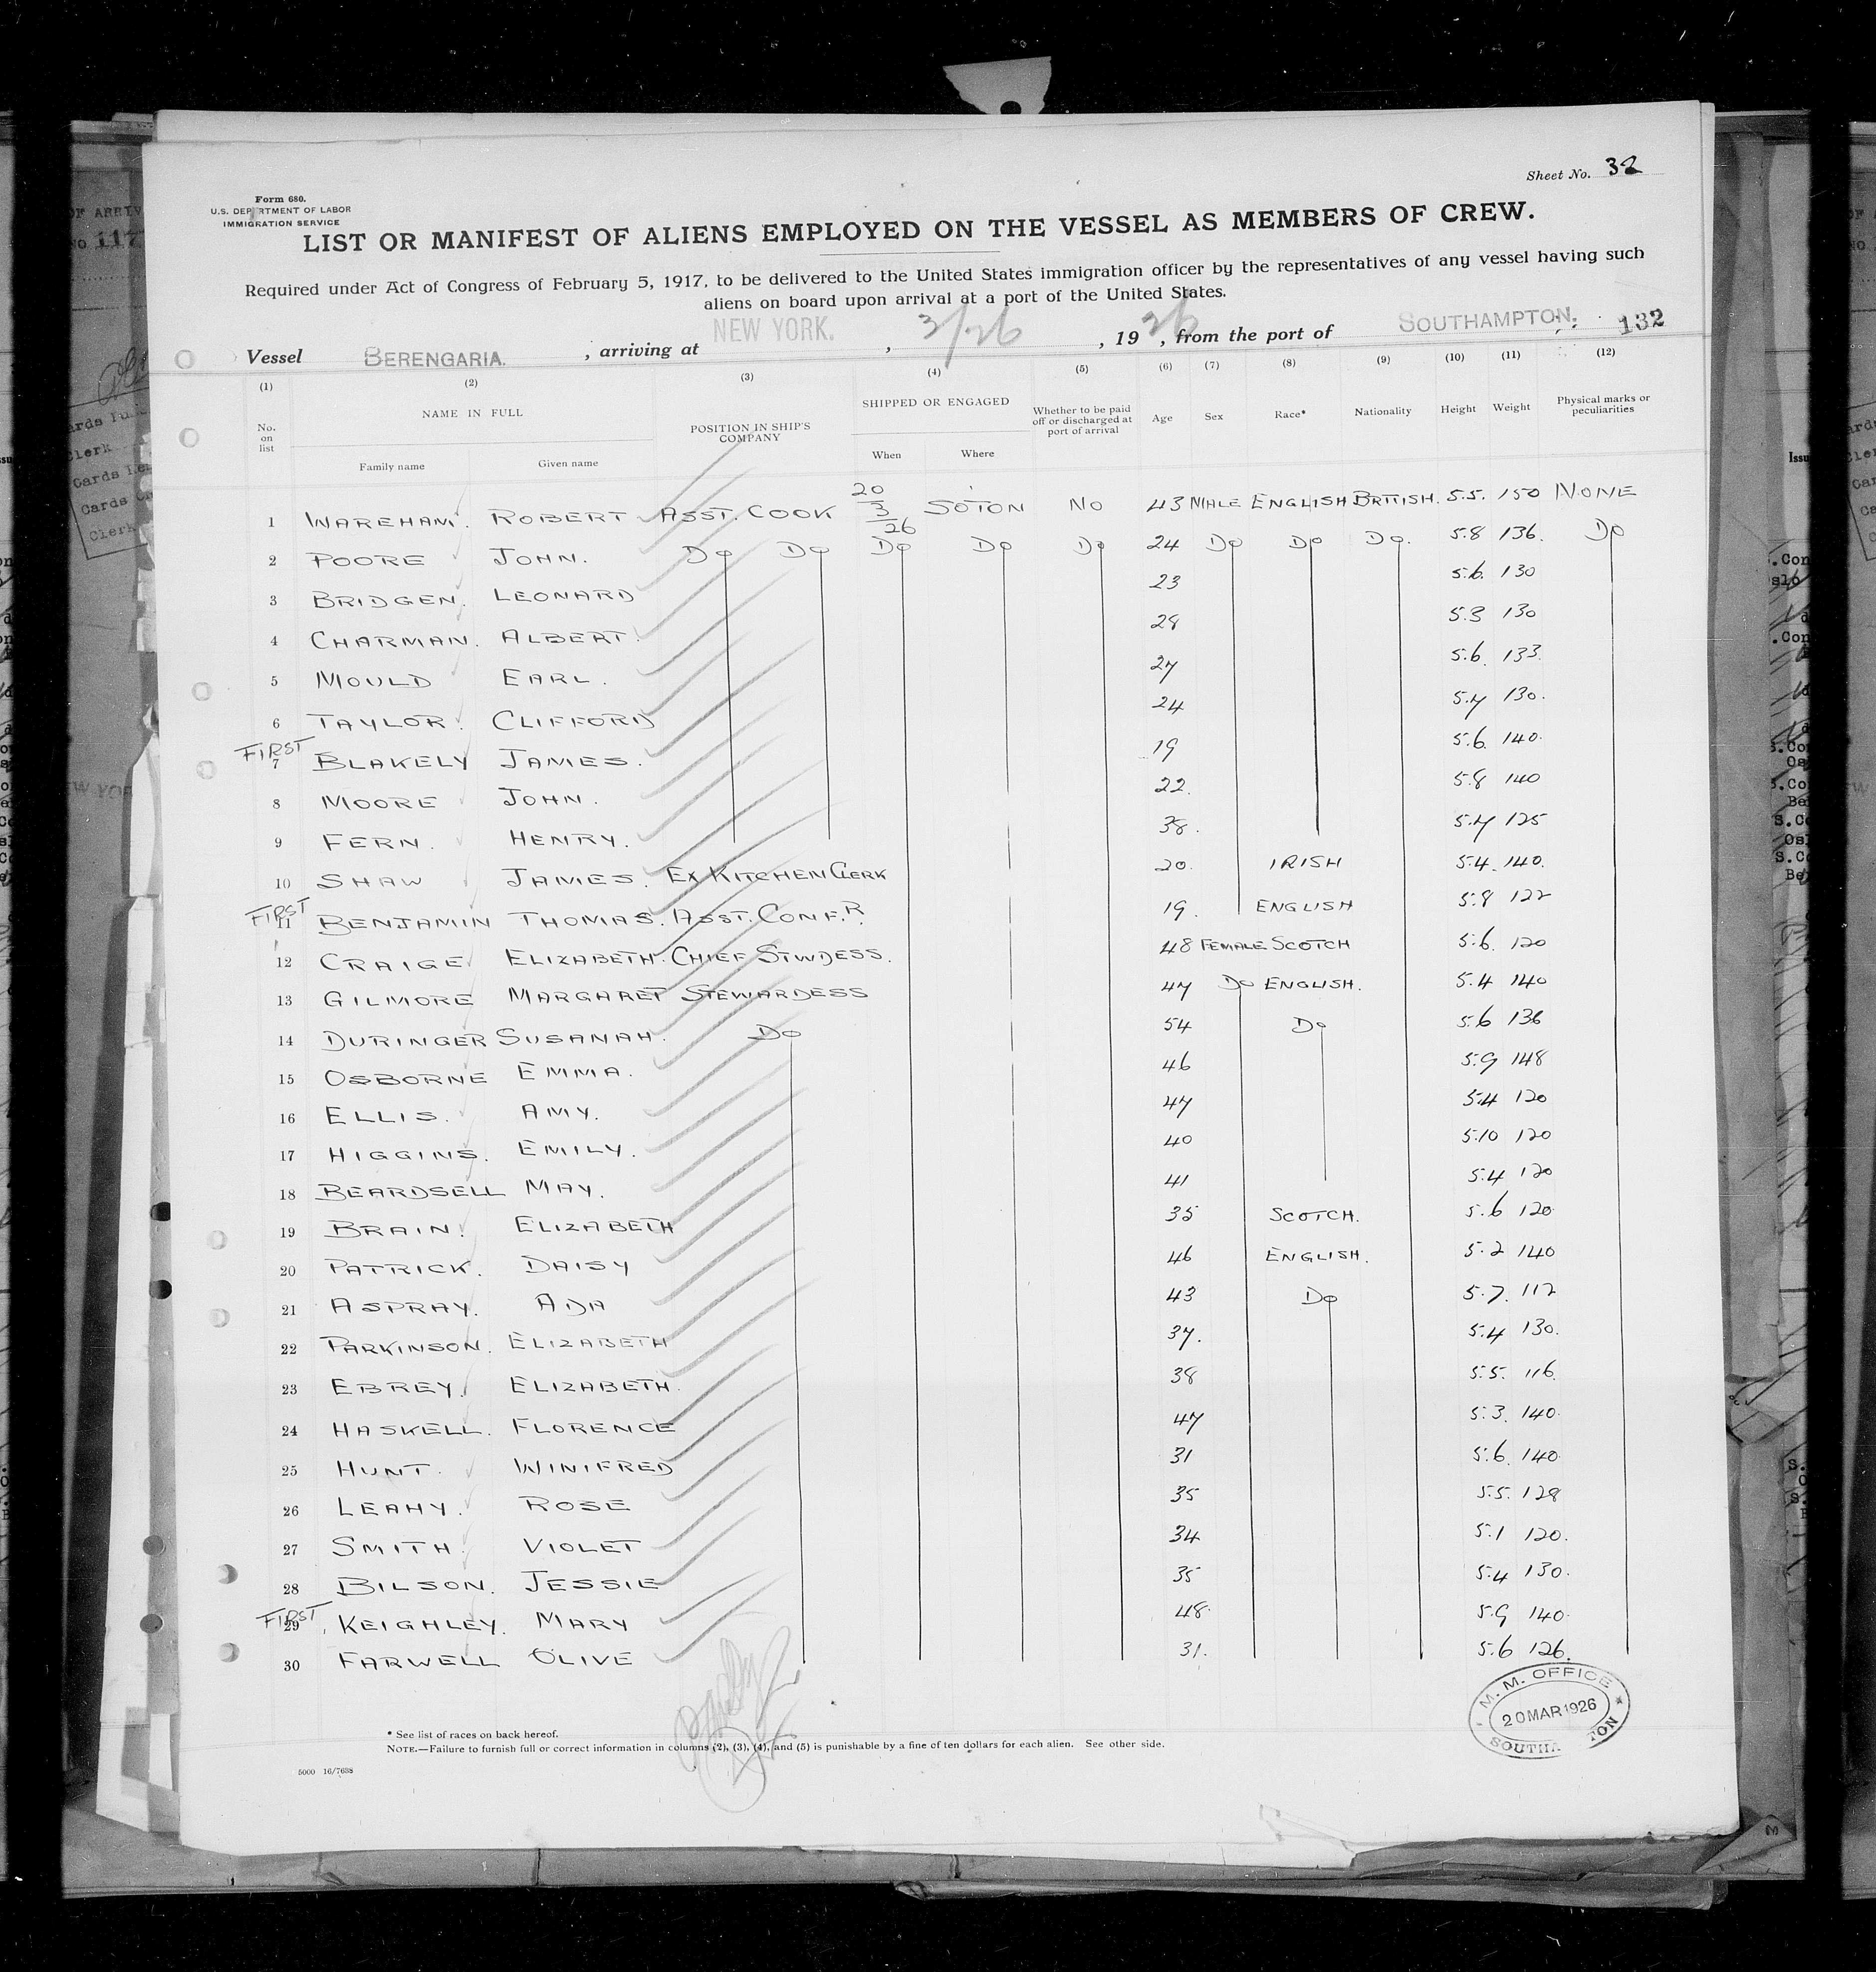 Sheet No. 32
Form 680.
U.S. DEPARTMENT OF LABOR
IMMIGRATION SERVICE
LIST OR MANIFEST OF ALIENS EMPLOYED ON THE VESSEL AS MEMBERS OF CREW.
Required under Act of Congress of February 5, 1917, to be delivered to the United States immigration officer by the representatives of any vessel having such
aliens on board upon arrival at a port of the United States.
Vessel BERENGARIA. , arriving at NEW YORK. , 3/26 , 1926 , from the port of SOUTHAMPTON. 132
(1) (2) (3) (4) (5) (6) (7) (8) (9) (10) (11) (12)
No. on list NAME IN FULL POSITION IN SHIP'S COMPANY SHIPPED OR ENGAGED Whether to be paid off or discharged at port of arrival Age Sex Race* Nationality Height Weight Physical marks or peculiarities
Family name Given name When Where
1 WAREHAM. ROBERT ASST. COOK 20/3/26 SOTON NO 43 MALE ENGLISH BRITISH. 5.5. 150 NONE
2 POORE JOHN. Do Do Do Do Do 24 Do Do Do. 5.8 136. Do
3 BRIDGEN. LEONARD 23 5.6. 130
4 CHARMAN. ALBERT. 28 5.3 130
5 MOULD EARL. 27 5.6. 133.
6 TAYLOR. CLIFFORD 24 5.7 130.
FIRST
7 BLAKELY JAMES. 19 5.6. 140.
8 MOORE JOHN. 22. 5.8 140
9 FERN. HENRY. 38. 5.7 125
10 SHAW JAMES. EX KITCHEN CLERK 20. IRISH 5.4. 140.
FIRST
11 BENJAMIN THOMAS. ASST. CONF.R. 19. ENGLISH 5.8 122
12 CRAIGE ELIZABETH. CHIEF STWDESS. 48 FEMALE SCOTCH 5.6. 120
13 GILMORE MARGARET STEWARDESS 47 Do ENGLISH. 5.4 140
14 DURINGER SUSANAH. Do 54 Do 5.6 136
15 OSBORNE EMMA. 46 5.9 148
16 ELLIS. AMY. 47 5.4 120
17 HIGGINS. EMILY. 40 5.10 120
18 BEARDSELL MAY. 41 5.4 120
19 BRAIN. ELIZABETH 35 SCOTCH. 5.6 120
20 PATRICK. DAISY 46 ENGLISH. 5.2 140
21 ASPRAY. ADA 43 Do 5.7. 112
22 PARKINSON. ELIZABETH 37. 5.4 130.
23 EBREY. ELIZABETH. 38 5.5. 116.
24 HASKELL. FLORENCE 47 5.3. 140.
25 HUNT. WINIFRED 31 5.6. 140.
26 LEAHY. ROSE 35 5.5. 128
27 SMITH. VIOLET 34 5.1 120.
28 BILSON. JESSIE 35 5.4 130.
FIRST
29 KEIGHLEY. MARY 48. 5.9 140.
30 FARWELL OLIVE 31. 5.6 126.
M. M. OFFICE
20 MAR 1926
* See list of races on back hereof.
NOTE.—Failure to furnish full or correct information in columns (2), (3), (4), and (5) is punishable by a fine of ten dollars for each alien. See other side.
5000 16/7638